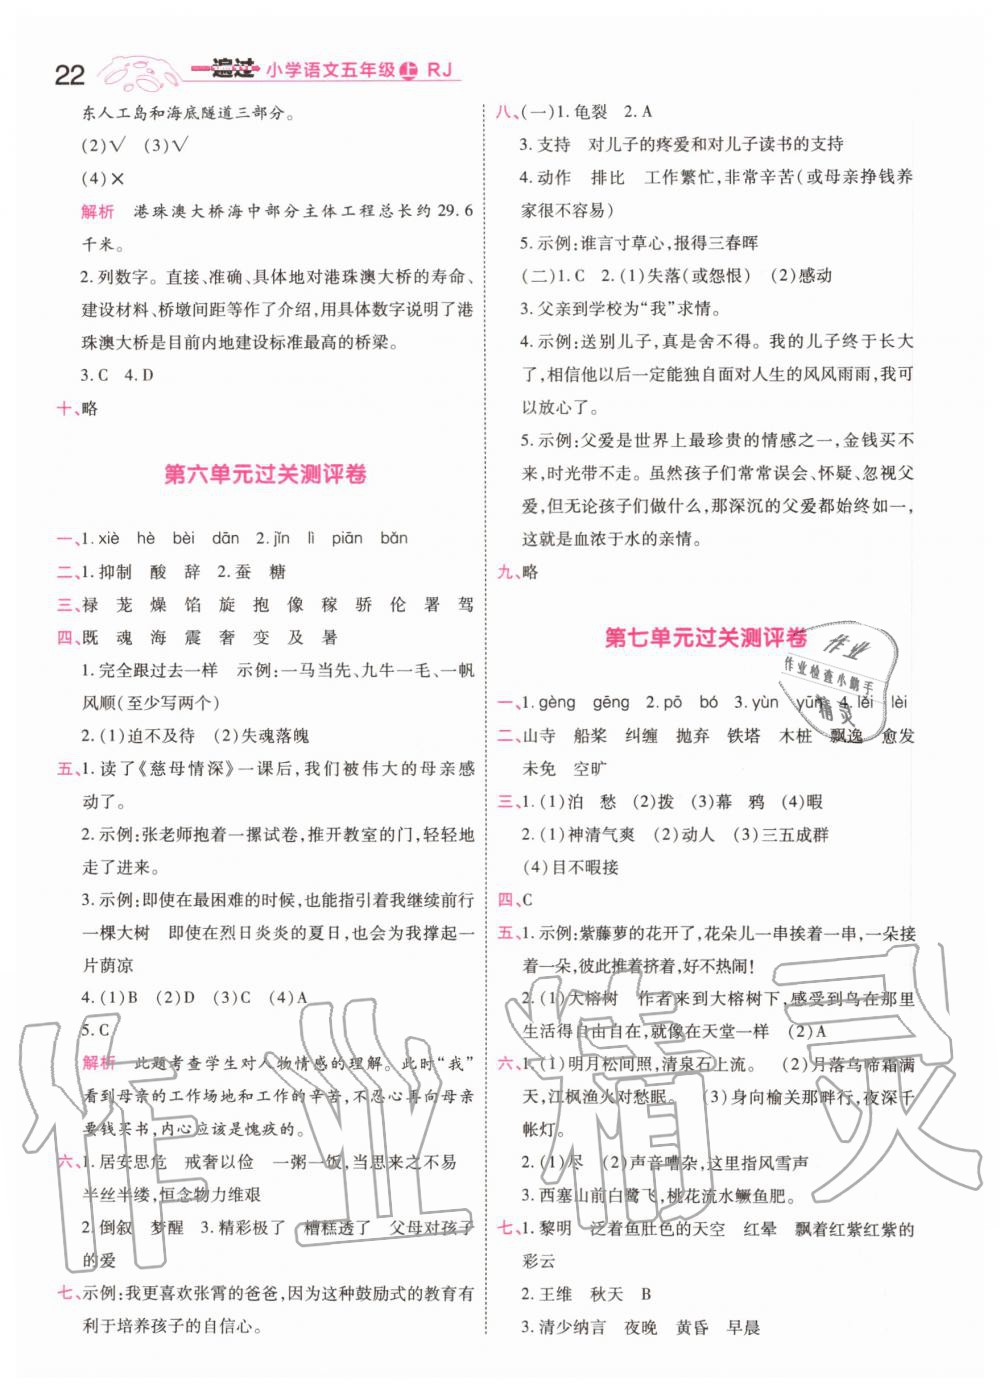 22 一遍过 小学语文五年级上 RJ
东人工岛和海底隧道三部分。
(2)√ (3)√
(4)×
解析 港珠澳大桥海中部分主体工程总长约29.6
千米。
2.列数字。直接、准确、具体地对港珠澳大桥的寿命、
建设材料、桥墩间距等作了介绍,用具体数字说明了港
珠澳大桥是目前内地建设标准最高的桥梁。
3.C 4.D
十、略
第六单元过关测评卷
一、1.xiè hè bèi dān 2.jǐn lì piān bǎn
二、1.抑制 酸 辞 2.蚕 糖
三、禄 茏 燥 馅 旋 抱 像 稼 骄 伦 署 驾
四、既 魂 海 震 奢 变 及 暑
1.完全跟过去一样 示例:一马当先、九牛一毛、一帆
风顺(至少写两个)
2.(1)迫不及待 (2)失魂落魄
五、1.读了《慈母情深》一课后,我们被伟大的母亲感
动了。
2.示例:张老师抱着一摞试卷,推开教室的门,轻轻地
走了进来。
3.示例:即使在最困难的时候,也能鼓励我继续前行
一棵大树 即使在烈日炎炎的夏日,也为我撑起一
片荫凉
4.(1)B (2)D (3)C (4)A
5.C
解析 此题考查学生对人物情感的理解。此时“我”
看到母亲的工作场地和工作的辛苦,不忍心再向母亲
要钱买书,内心应该是愧疚的。
六、1.居安思危 戒奢以俭 一粥一饭,当思来之不易
半丝半缕,恒念物力维艰
2.倒叙 梦醒 3.精彩极了 糟糕透了 父母对孩子
的爱
七、示例:我更喜欢张霄的爸爸,因为这种鼓励式的教育有
利于培养孩子的自信心。
八、(一)1.龟裂 2.A
3.支持 对儿子的疼爱和对儿子读书的支持
4.动作 排比 工作繁忙,非常辛苦(或母亲挣钱养
家很不容易)
5.示例:谁言寸草心,报得三春晖
(二)1.C 2.(1)失落(或怨恨) (2)感动
3.父亲到学校为“我”求情。
4.示例:送别儿子,真是舍不得。我的儿子终于长大
了,相信他以后一定能独自面对人生的风风雨雨,我可
以放心了。
5.示例:父爱是世界上最珍贵的情感之一,金钱买不
来,时光带不走。虽然孩子们常常误会、怀疑、忽视父
爱,但无论孩子们做什么,那深沉的父爱都始终如一,
这就是血浓于水的亲情。
九、略
第七单元过关测评卷
一、1.gèng gēng 2.pō bó 3.yùn yūn 4.lěi lèi
二、山寺 船桨 纠缠 抛弃 铁塔 木桩 飘逸 愈发
未免 空旷
三、1.(1)泊 愁 (2)拨 (3)幕 鸦 (4)暇
2.(1)神清气爽 (2)动人 (3)三五成群
(4)目不暇接
四、C
五、1.示例:紫藤萝的花开了,花朵儿一串挨着一串,一朵接
着一朵,彼此推着挤着,好不热闹!
2.(1)大榕树 作者来到大榕树下,感受到鸟在那里
生活得自由自在,就像在天堂一样 (2)A
六、1.(1)明月松间照,清泉石上流。 (2)月落乌啼霜满
天,江枫渔火对愁眠。 (3)身向榆关那畔行,夜深千
帐灯。
2.(1)尽 (2)声音嘈杂,这里指风雪声
3.西塞山前白鹭飞,桃花流水鳜鱼肥。
七、1.黎明 泛着鱼肚色的天空 红晕 飘着红紫红紫的
彩云
2.王维 秋天 B
3.清少纳言 夜晚 黄昏 早晨
作业
作业检查小鹅手
精灵
作业精灵